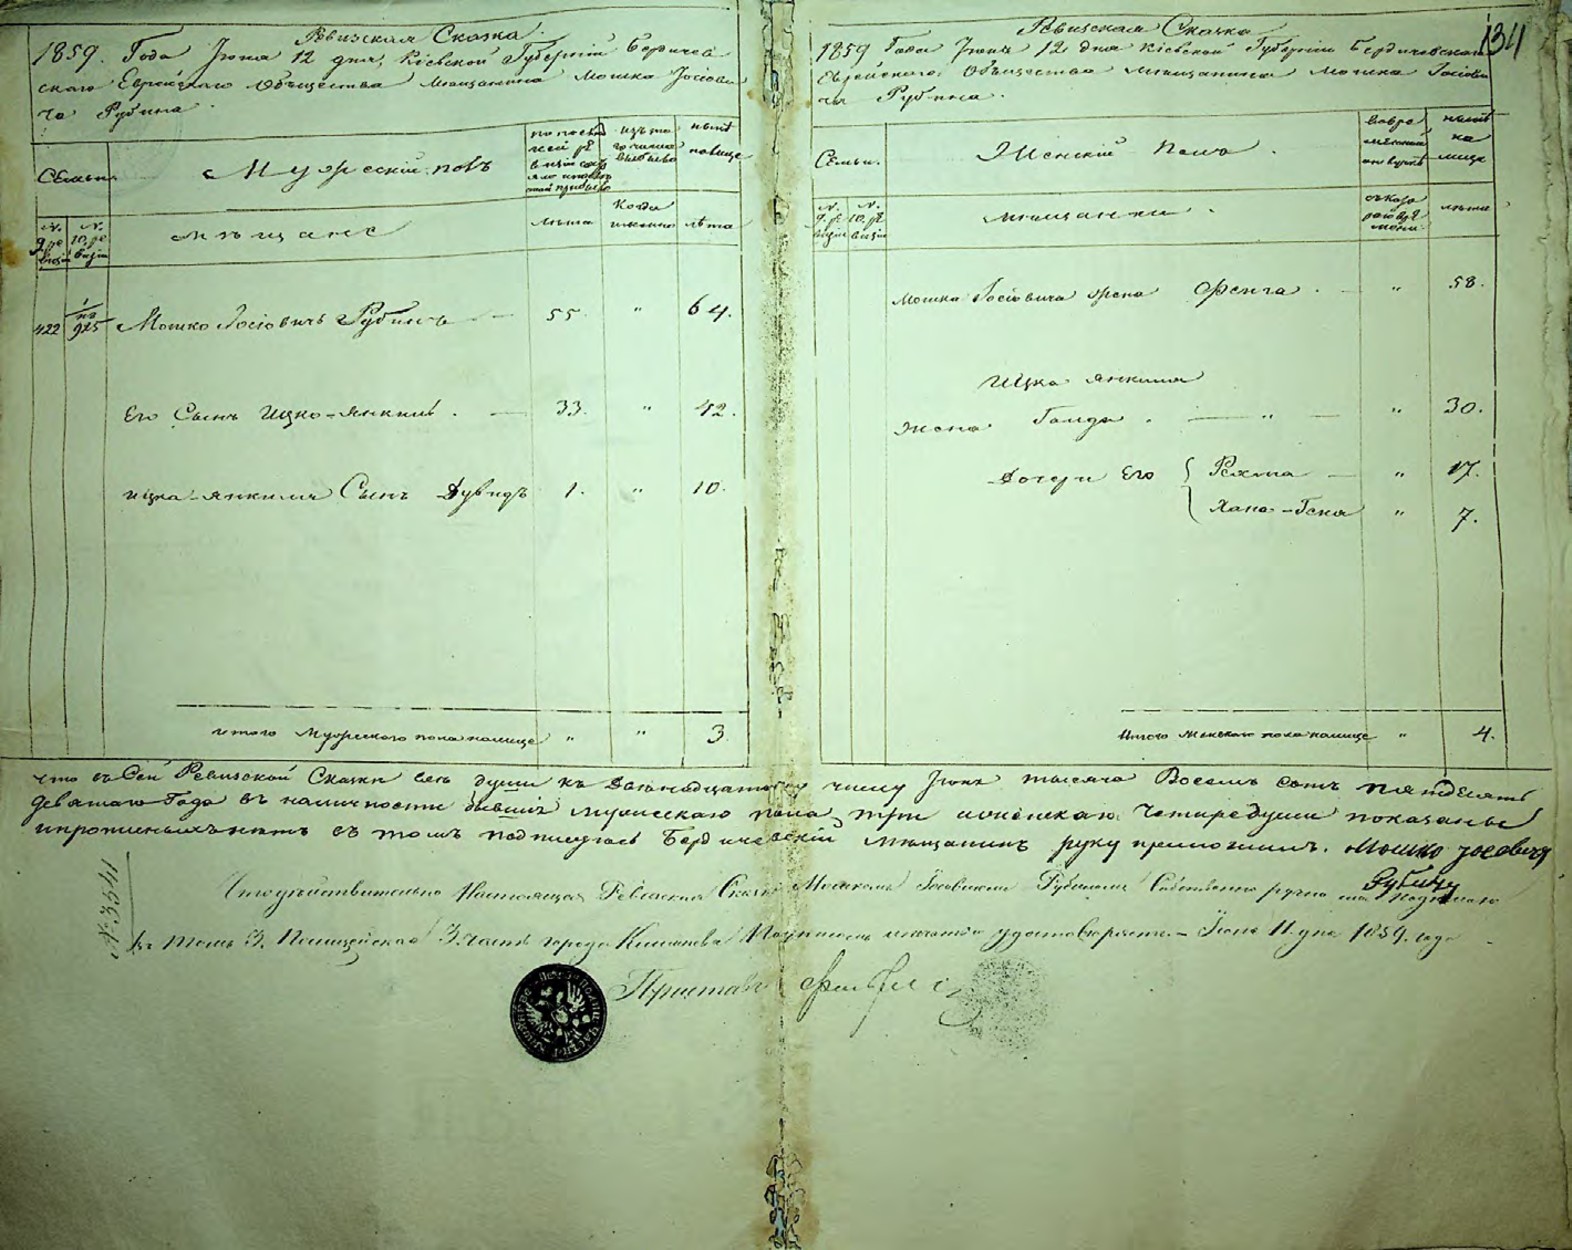 Ревизская Сказка.
1859. Года Іюня 12 дня, Кіевской Губерніи Бердичев
скаго Еврейскаго Общества мещанина Мошка Іосіови
ча Рубина.
Семьи.
Мужескій полъ
мѣщане
лѣта
Когда
именно
лѣта
N.
9. ре
визіи
N.
10. ре
визіи
422
925
Мошко Іосіовичъ Рубинъ
55
"
64.
Его Сынъ Ицко-Янкель.
33.
"
42.
Ицка-Янкиля Сынъ Дувидъ
1.
"
10.
итого Мужескаго пола налице
"
"
3
134
Ревизская Сказка
1859 Года Іюня 12 дня Кіевской Губерніи Бердичевскаго
Еврейскаго Общества мещанина Мошка Іосіови
ча Рубина.
Семьи.
Женскій Полъ.
мещанки.
лѣта
N.
9. ре
визіи
N.
10. ре
визіи
Мошка Іосіовича жена Френга.
"
58.
Ицка Янкиля
жена Голда. "
"
30.
Дочери Его { Рехма
"
17.
Хана-Геня
"
7.
Итого женскаго пола налице
"
4.
что въ Сей Ревизской Сказки всѣ души къ Двенадцатому числу Іюня тысяча Восемь сотъ пятдесятъ
девятаго Года въ наличности бывшія мужескаго пола три и женскаго Четире души показаны
и прописныхъ нетъ въ томъ подписуюсь Бердичевскій мещанинъ руку приложилъ. Мошко Іосевичъ
Рубинъ
Что действительно Настоящая Ревизская Сказка Мошкомъ Іосевичемъ Рубинымъ Собственно ручно подписана
въ томъ 3. Полицейская Часть города Кишинева Подписью и печатью удостоверяетъ. – Іюня 11 дня 1859. года
№ 3541
Приставъ